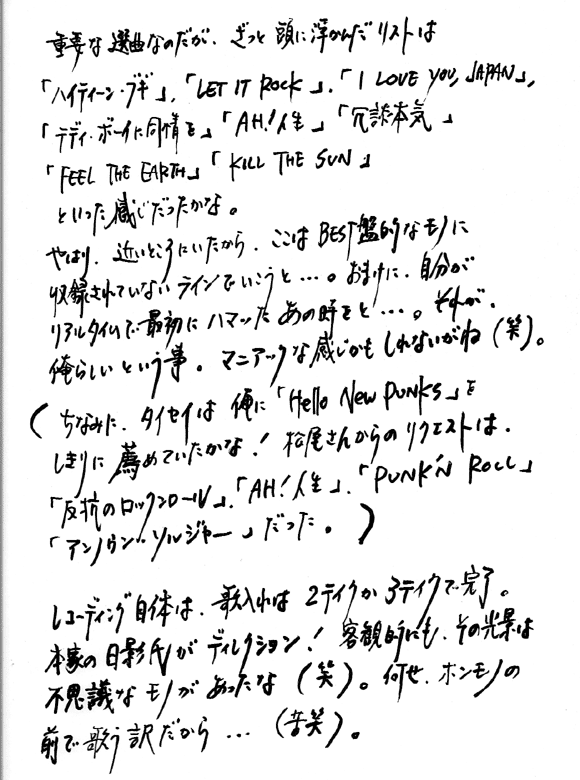 重要な選曲なのだが、ざっと頭に浮かんだリストは
「ハイティーン・ブギ」、「LET IT ROCK」、「I LOVE YOU, JAPAN」、
「テディ・ボーイに同情を」「AH!人生」「冗談本気」
「FEEL THE EARTH」「KILL THE SUN」
といった感じだったかな。
やはり、近いところにいたから、ここはBEST盤的なモノに
収録されていないラインでいこうと…。おまけに、自分が
リアルタイムで最初にハマッたあの時をと…。それが、
俺らしいという事。マニアックな感じかもしれないがね(笑)。
(ちなみに、タイセイは俺に「Hello New PUNKS」を
しきりに薦めていたかな!松尾さんからのリクエストは、
「反抗のロックンロール」、「AH!人生」、「PUNK'N ROLL」
「アンノウン・ソルジャー」だった。)
レコーディング自体は、歌入れは2テイクか3テイクで完了。
本家の日影氏がディレクション!客観的にも、その光景は
不思議なモノがあったな(笑)。何せ、ホンモノの
前で歌う訳だから…(苦笑)。